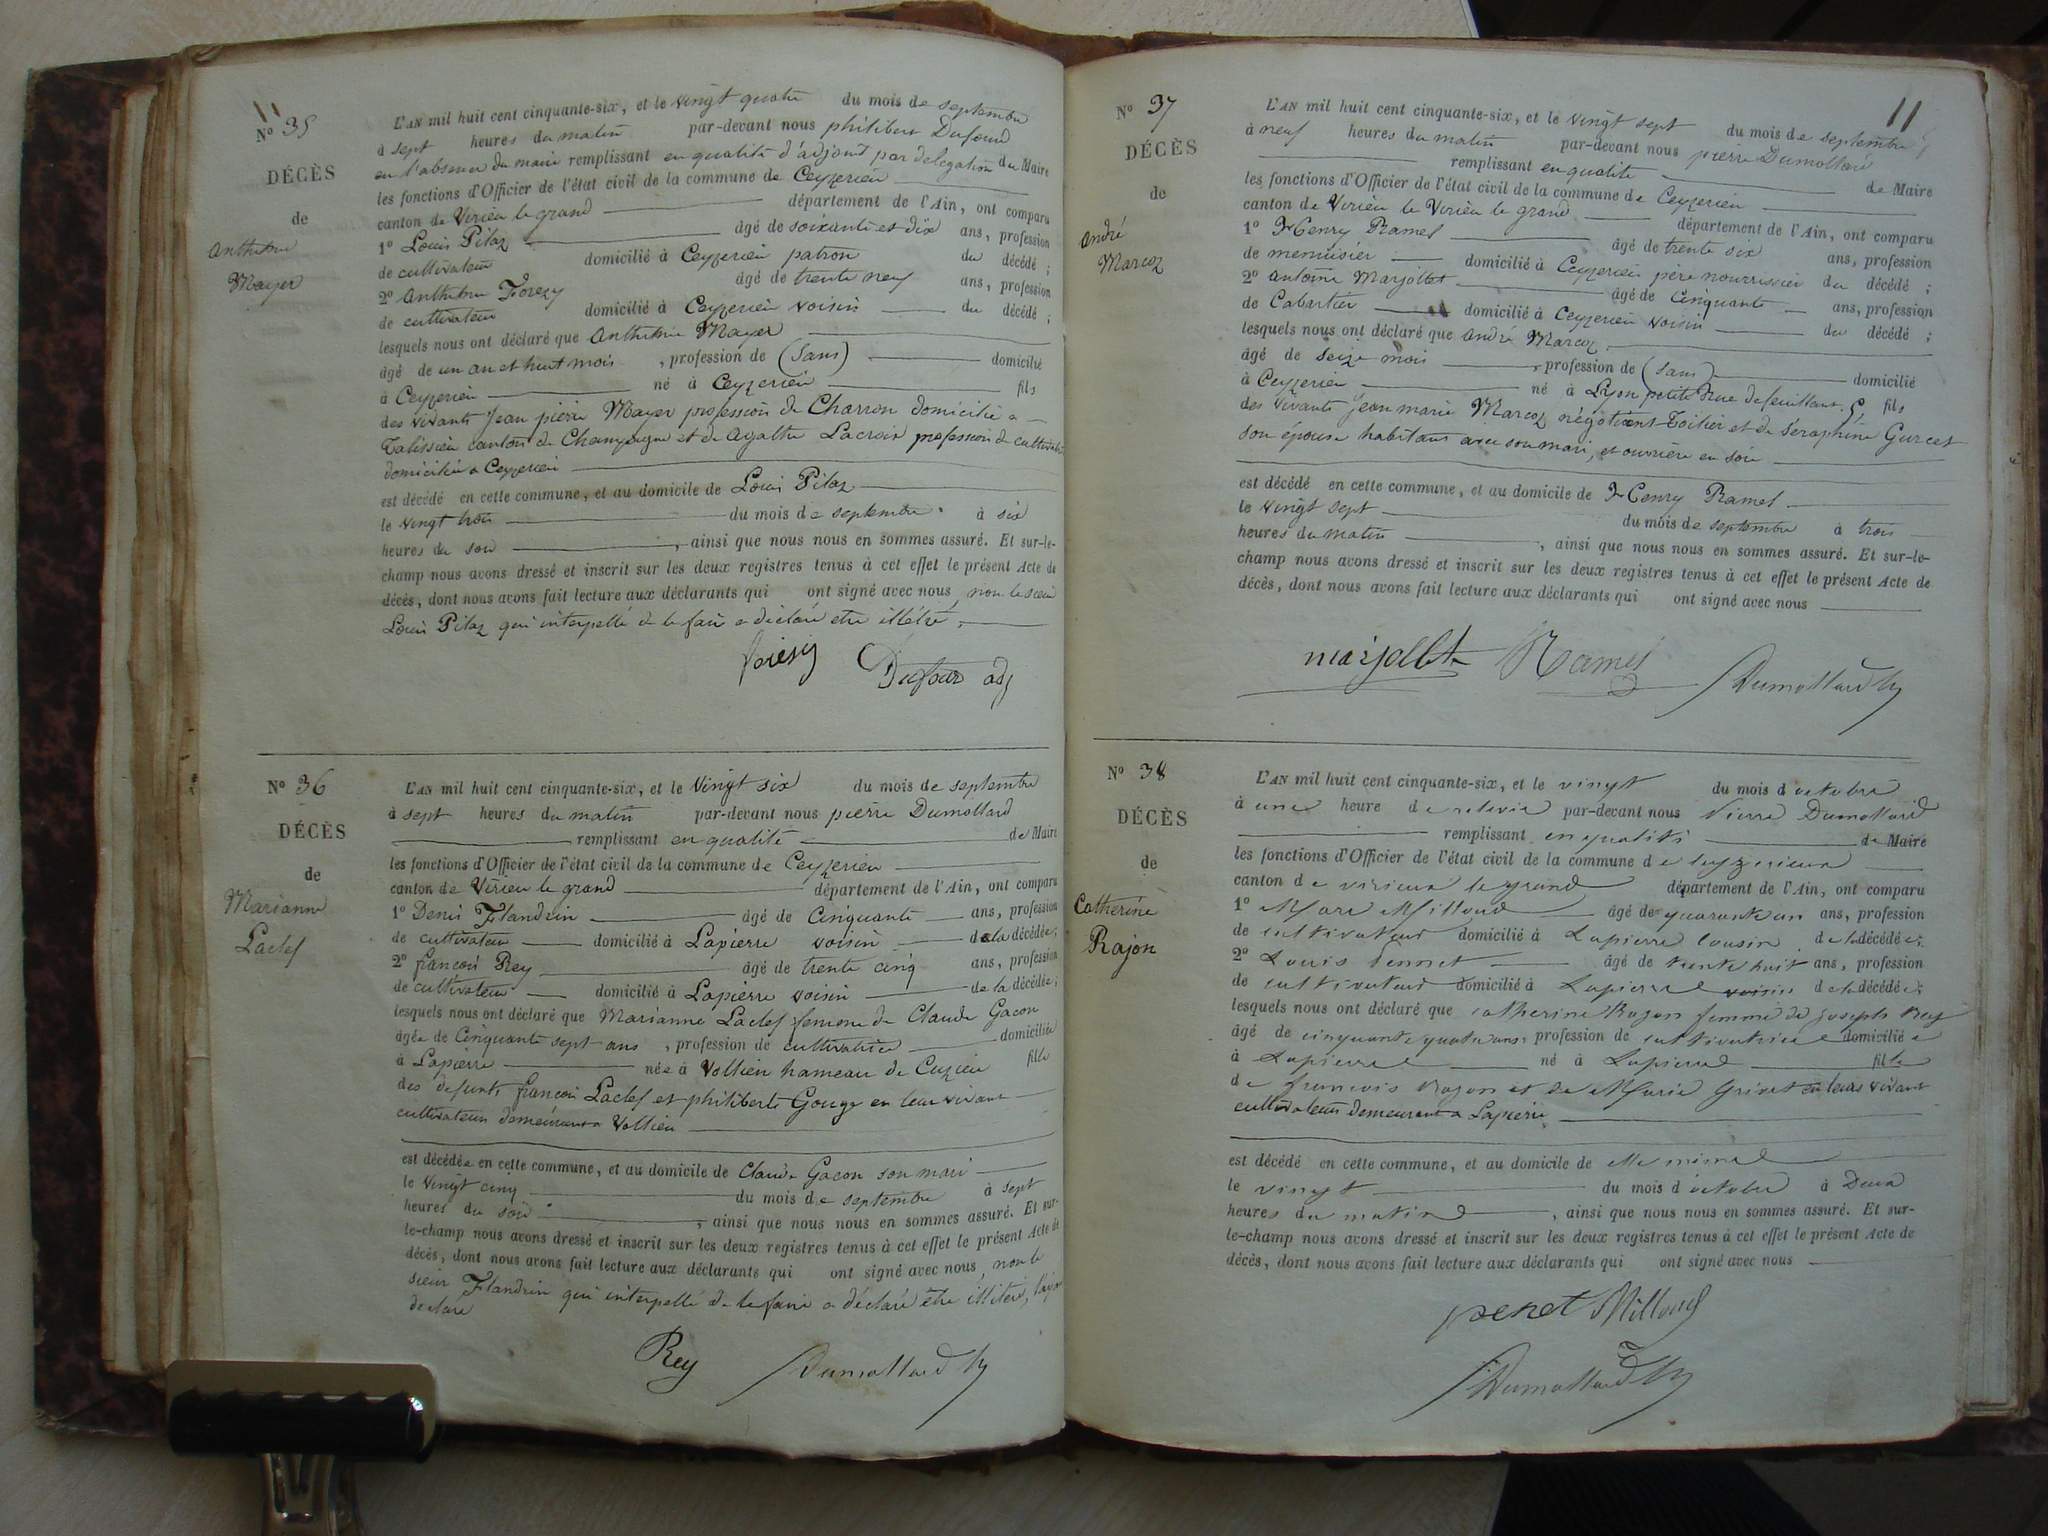 11
N° 35
DÉCÈS
de
Anthelme
Mayer
L'AN mil huit cent cinquante-six, et le vingt quatre du mois de septembre
à sept heures du matin par-devant nous philibert Dufour
en l'absence du maire remplissant en qualité d'adjoint par delegation du Maire
les fonctions d'Officier de l'état civil de la commune de Ceyzerieu
canton de Virieu le grand département de l'Ain, ont comparu
1° Louis Pilaz âgé de soixante et dix ans, profession
de cultivateur domicilié à Ceyzerieu patron du décédé ;
2° Anthelme Forezy âgé de trente neuf ans, profession
de cultivateur domicilié à Ceyzerieu voisin du décédé ;
lesquels nous ont déclaré que Anthelme Mayer
âgé de un an et huit mois , profession de (sans) domicilié
à Ceyzerieu né à Ceyzerieu fils
des vivants Jean pierre Mayer profession de Charron domicilié a
Talissieu canton de Champagne et de Agathe Lacroix profession de
domiciliée a Ceyzerieu
est décédé en cette commune, et au domicile de Louis Pilaz
le vingt trois du mois de septembre à six
heures du soir , ainsi que nous nous en sommes assuré. Et sur-le-
champ nous avons dressé et inscrit sur les deux registres tenus à cet effet le présent Acte de
décès, dont nous avons fait lecture aux déclarants qui ont signé avec nous, non le sieur
Louis Pilaz qui interpellé de le faire a déclaré etre illétré.
Dufour adj
N° 36
DÉCÈS
de
Marianne
Laclef
L'AN mil huit cent cinquante-six, et le vingt six du mois de septembre
à sept heures du matin par-devant nous pierre Dumollard
remplissant en qualité de Maire
les fonctions d'Officier de l'état civil de la commune de Ceyzerieu
canton de Virieu le grand département de l'Ain, ont comparu
1° Denis Flandrin âgé de Cinquante ans, profession
de cultivateur domicilié à Lapierre voisin de la décédée ;
2° françois Rey âgé de trente cinq ans, profession
de cultivateur domicilié à Lapierre voisin de la décédée ;
lesquels nous ont déclaré que Marianne Laclef femme de Claude Gacon
âgée de Cinquante sept ans , profession de cultivatrice domiciliée
à Lapierre née à Vollien hameau de Cuzieu fille
des defunts françois Laclef et philiberte Gouge en leur vivant
cultivateurs demeurant a Vollien
est décédée en cette commune, et au domicile de Claude Gacon son mari
le vingt cinq du mois de septembre à sept
heures du soir , ainsi que nous nous en sommes assuré. Et sur-
le-champ nous avons dressé et inscrit sur les deux registres tenus à cet effet le présent Acte de
décès, dont nous avons fait lecture aux déclarants qui ont signé avec nous, non le
sieur Flandrin qui interpellé de le faire a déclaré être illiteré,
declare
Rey Dumollard
11
N° 37
DÉCÈS
de
André
Marcoz
L'AN mil huit cent cinquante-six, et le vingt sept du mois de septembre
à neuf heures du matin par-devant nous pierre Dumollard
remplissant en qualité de Maire
les fonctions d'Officier de l'état civil de la commune de Ceyzerieu
canton de Virieu le Virieu le grand département de l'Ain, ont comparu
1° Henry Ramel âgé de trente six ans, profession
de menuisier domicilié à Ceyzerieu père nourrissier du décédé ;
2° Antoine Marjollet âgé de Cinquante ans, profession
de Cabartier domicilié à Ceyzerieu voisin du décédé ;
lesquels nous ont déclaré que André Marcoz
âgé de seize mois , profession de (sans) domicilié
à Ceyzerieu né à Lyon petite Rue de feuillans fils
des vivants Jean marie Marcoz négotient Toilier et de Séraphine Gurcet
son épouse habitant avec son mari, et ouvrière en soie
est décédé en cette commune, et au domicile de Henry Ramel
le vingt sept du mois de septembre à trois
heures du matin , ainsi que nous nous en sommes assuré. Et sur-le-
champ nous avons dressé et inscrit sur les deux registres tenus à cet effet le présent Acte de
décès, dont nous avons fait lecture aux déclarants qui ont signé avec nous
marjollet Ramel Dumollard
N° 38
DÉCÈS
de
Catherine
Rajon
L'AN mil huit cent cinquante-six, et le vingt du mois d'octobre
à une heure de relevée par-devant nous Pierre Dumollard
remplissant en qualité de Maire
les fonctions d'Officier de l'état civil de la commune de
canton de virieux le grand département de l'Ain, ont comparu
1° Marc Milloud âgé de quarante un ans, profession
de cultivateur domicilié à Lapierre cousin de la décédée ;
2° Louis Pennet âgé de trente huit ans, profession
de cultivateur domicilié à Lapierre voisin de la décédée ;
lesquels nous ont déclaré que catherine Rajon femme de joseph Rey
âgé de cinquante quatre ans profession de cultivatrice domiciliée
à Lapierre né à Lapierre fille
de francois Rajon et de Marie Grivet en leurs vivant
cultivateurs demeurant a Lapierre
est décédé en cette commune, et au domicile de elle même
le vingt du mois d'octobre à Deux
heures du matin , ainsi que nous nous en sommes assuré. Et sur-
le-champ nous avons dressé et inscrit sur les deux registres tenus à cet effet le présent Acte de
décès, dont nous avons fait lecture aux déclarants qui ont signé avec nous
penet Milloud
Dumollard